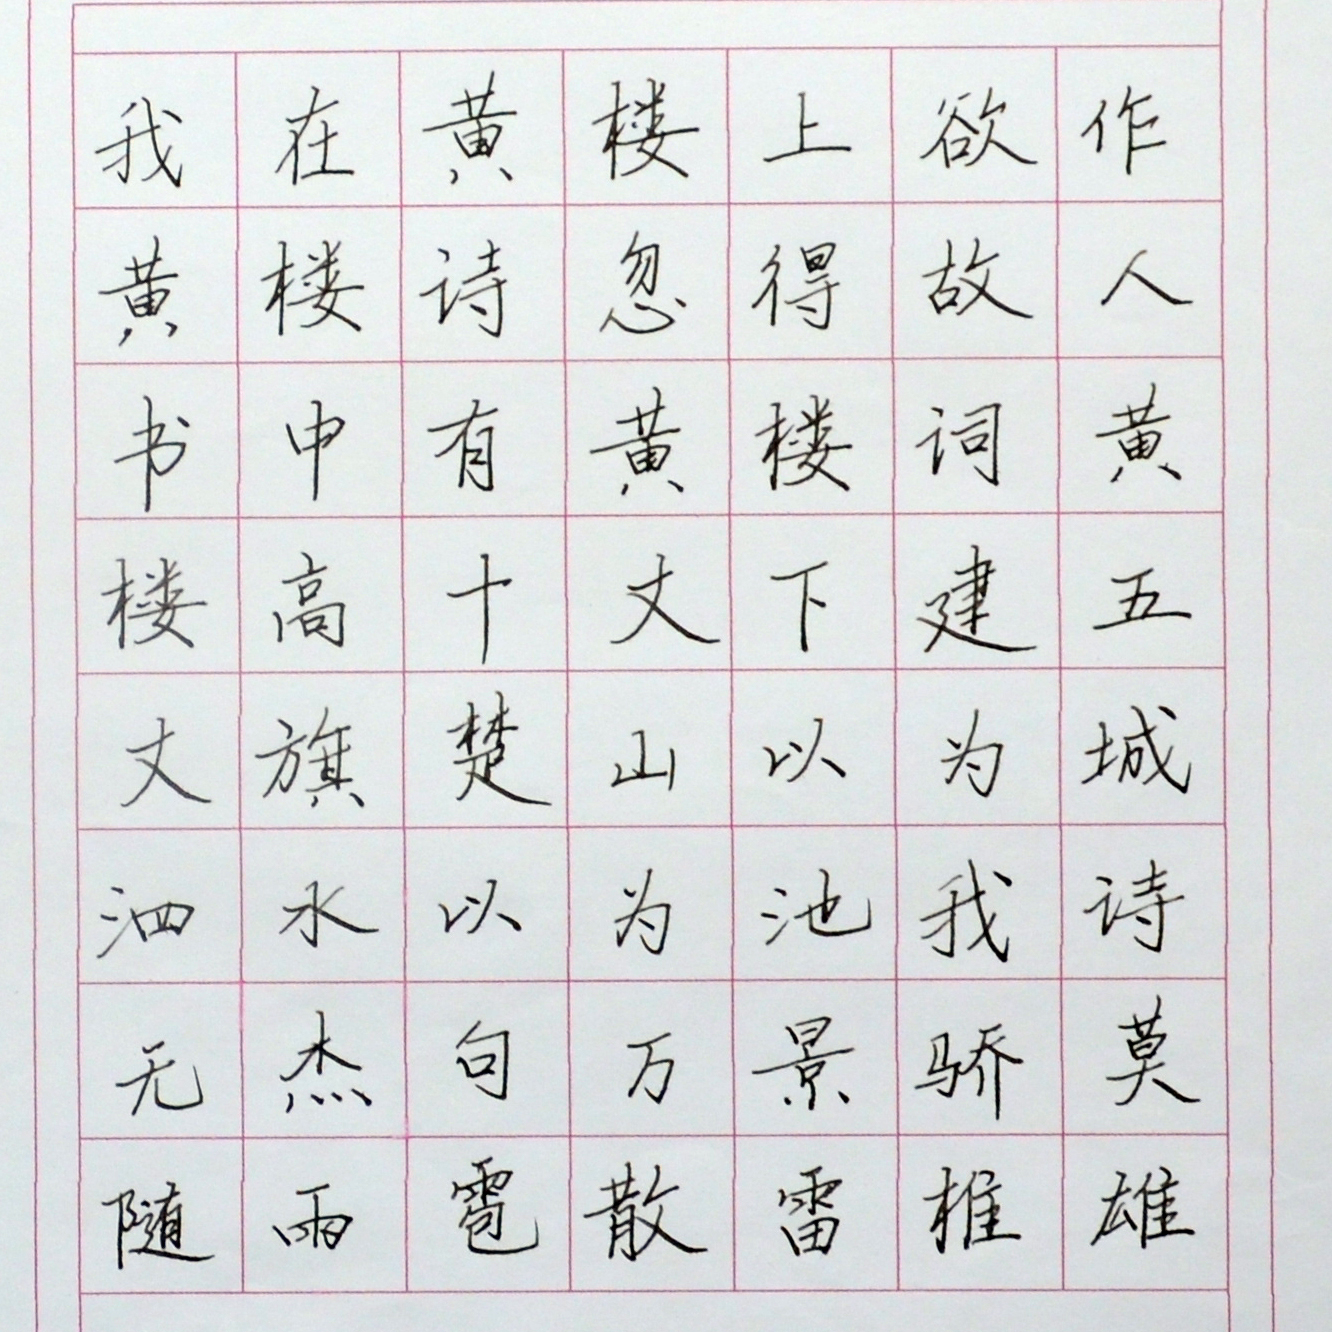 我在黄楼上欲作
黄楼诗忽得故人
书中有黄楼词黄
楼高十丈下建五
丈旗楚山以为城
泗水以为池我诗
无杰句万景骄莫
随雨雹散雷椎雄